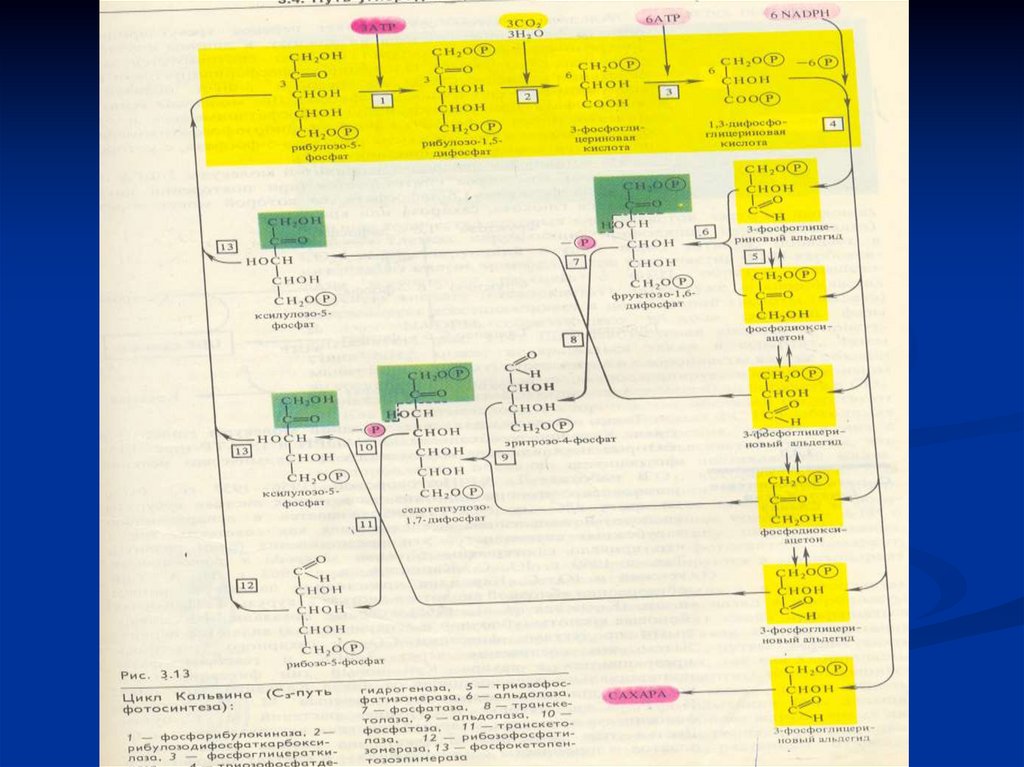 3ATP
3CO₂
3H₂O
6ATP
6 NADPH
CH₂OH
C=O
3
CHOH
CHOH
CH₂O(P)
рибулозо-5-
фосфат
1
CH₂O(P)
C=O
3
CHOH
CHOH
CH₂O(P)
рибулозо-1,5-
дифосфат
2
CH₂O(P)
6
CHOH
COOH
3-фосфогли-
цериновая
кислота
3
CH₂O(P)
6
CHOH
COO(P)
1,3-дифосфо-
глицериновая
кислота
−6(P)
4
CH₂O(P)
CHOH
C=O
H
3-фосфоглице-
риновый альдегид
5
CH₂O(P)
C=O
CH₂OH
фосфодиокси-
ацетон
6
CH₂O(P)
C=O
HOCH
CHOH
CHOH
CH₂O(P)
фруктозо-1,6-
дифосфат
−(P)
7
13
CH₂OH
C=O
HOCH
CHOH
CH₂O(P)
ксилулозо-5-
фосфат
8
C=O
H
CHOH
CHOH
CH₂O(P)
эритрозо-4-фосфат
CH₂O(P)
CHOH
C=O
H
3-фосфоглицери-
новый альдегид
9
CH₂O(P)
C=O
HOCH
CHOH
CHOH
CHOH
CH₂O(P)
седогептулозо-
1,7-дифосфат
−(P)
10
13
CH₂OH
C=O
HOCH
CHOH
CH₂O(P)
ксилулозо-5-
фосфат
CH₂O(P)
C=O
CH₂OH
фосфодиокси-
ацетон
11
CH₂O(P)
CHOH
C=O
H
3-фосфоглицери-
новый альдегид
12
C=O
H
CHOH
CHOH
CHOH
CH₂O(P)
рибозо-5-фосфат
CH₂O(P)
CHOH
C=O
H
3-фосфоглицери-
новый альдегид
САХАРА
Рис. 3.13
Цикл Кальвина (C₃-путь
фотосинтеза):
1 — фосфорибулокиназа, 2—
рибулозодифосфаткарбокси-
лаза, 3 — фосфоглицератки-
4 — триозофосфатде-
гидрогеназа, 5 — триозофос-
фатизомераза, 6 — альдолаза,
7 — фосфатаза, 8 — транске-
толаза, 9 — альдолаза, 10 —
фосфатаза, 11 — транскето-
лаза, 12 — рибозофосфати-
зомераза, 13 — фосфокетопен-
тозоэпимераза